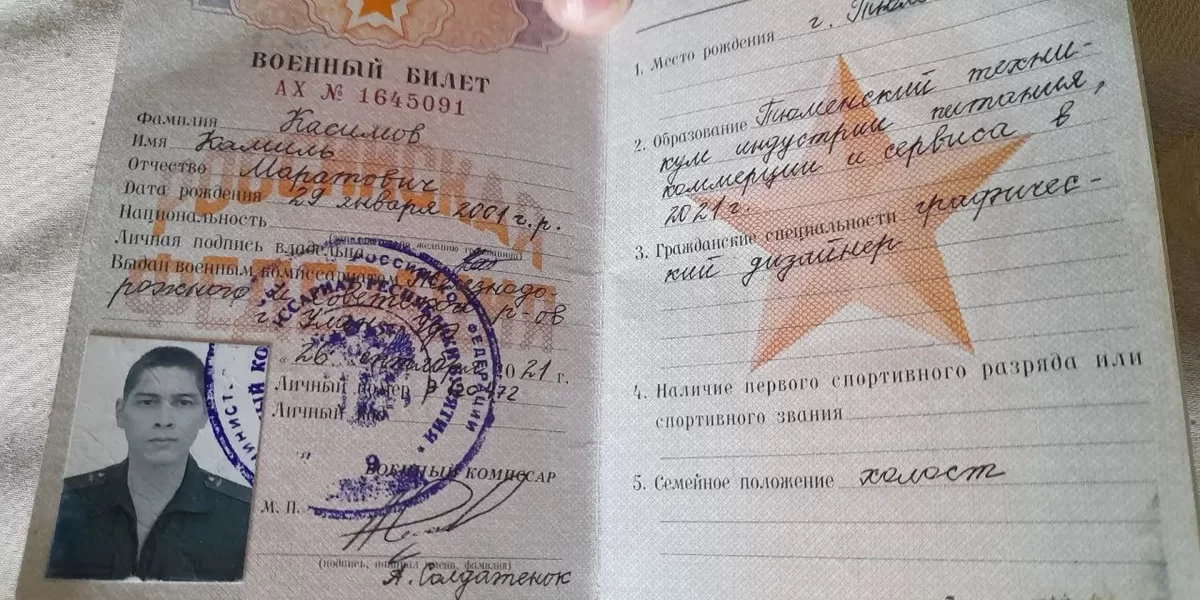 ВОЕННЫЙ БИЛЕТ
АХ № 1645091
Фамилия Касимов
Имя Камиль
Отчество Маратович
Дата рождения 29 января 2001 г.р.
Национальность
Личная подпись владельца
Выдан военным комиссариатом Железнодо
рожного и Советского р-ов
г. Улан-Удэ
" 26 октября 2021 г.
Личный номер
Личный
ВОЕННЫЙ КОМИССАР
М. П.
(подпись, инициал имени, фамилия)
А. Солдатенок
1. Место рождения г.
2. Образование Тюменский техни-
кум индустрии питания,
коммерции и сервиса в
2021 г.
3. Гражданские специальности графичес-
кий дизайнер
4. Наличие первого спортивного разряда или
спортивного звания
5. Семейное положение холост